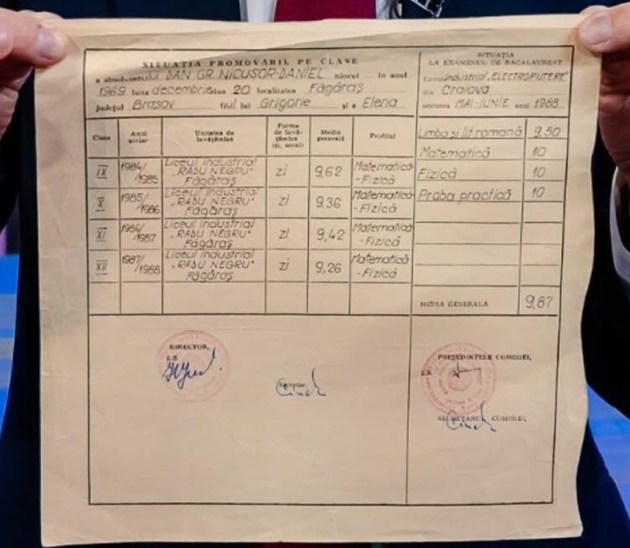 SITUAȚIA PROMOVĂRII PE CLASE
a absolventului DAN GR. NICUȘOR-DANIEL născut în anul
1969 luna decembrie ziua 20 localitatea Făgăraș
județul Brașov fiul lui Grigorie și a Elena
Clasa
Anii școlar
Unitatea de învățămînt
Forma de învățămînt (zi, seral)
Media generală
Profilul
IX 1984/1985 Liceul industrial "RADU NEGRU" Făgăraș zi 9,62 Matematică-Fizică
X 1985/1986 Liceul industrial "RADU NEGRU" Făgăraș zi 9,36 Matematică-Fizică
XI 1986/1987 Liceul industrial "RADU NEGRU" Făgăraș zi 9,42 Matematică-Fizică
XII 1987/1988 Liceul industrial "RADU NEGRU" Făgăraș zi 9,26 Matematică-Fizică
DIRECTOR,
L.S.
Secretar,
SITUAȚIA
LA EXAMENUL DE BACALAUREAT
Liceul industrial "ELECTROPUTERE"
din Craiova
sesiunea MAI-IUNIE anul 1988
Limba și lit. română 9,50
Matematică 10
Fizică 10
Proba practică 10
MEDIA GENERALĂ 9,87
PREȘEDINTELE COMISIEI,
SECRETARUL COMISIEI,